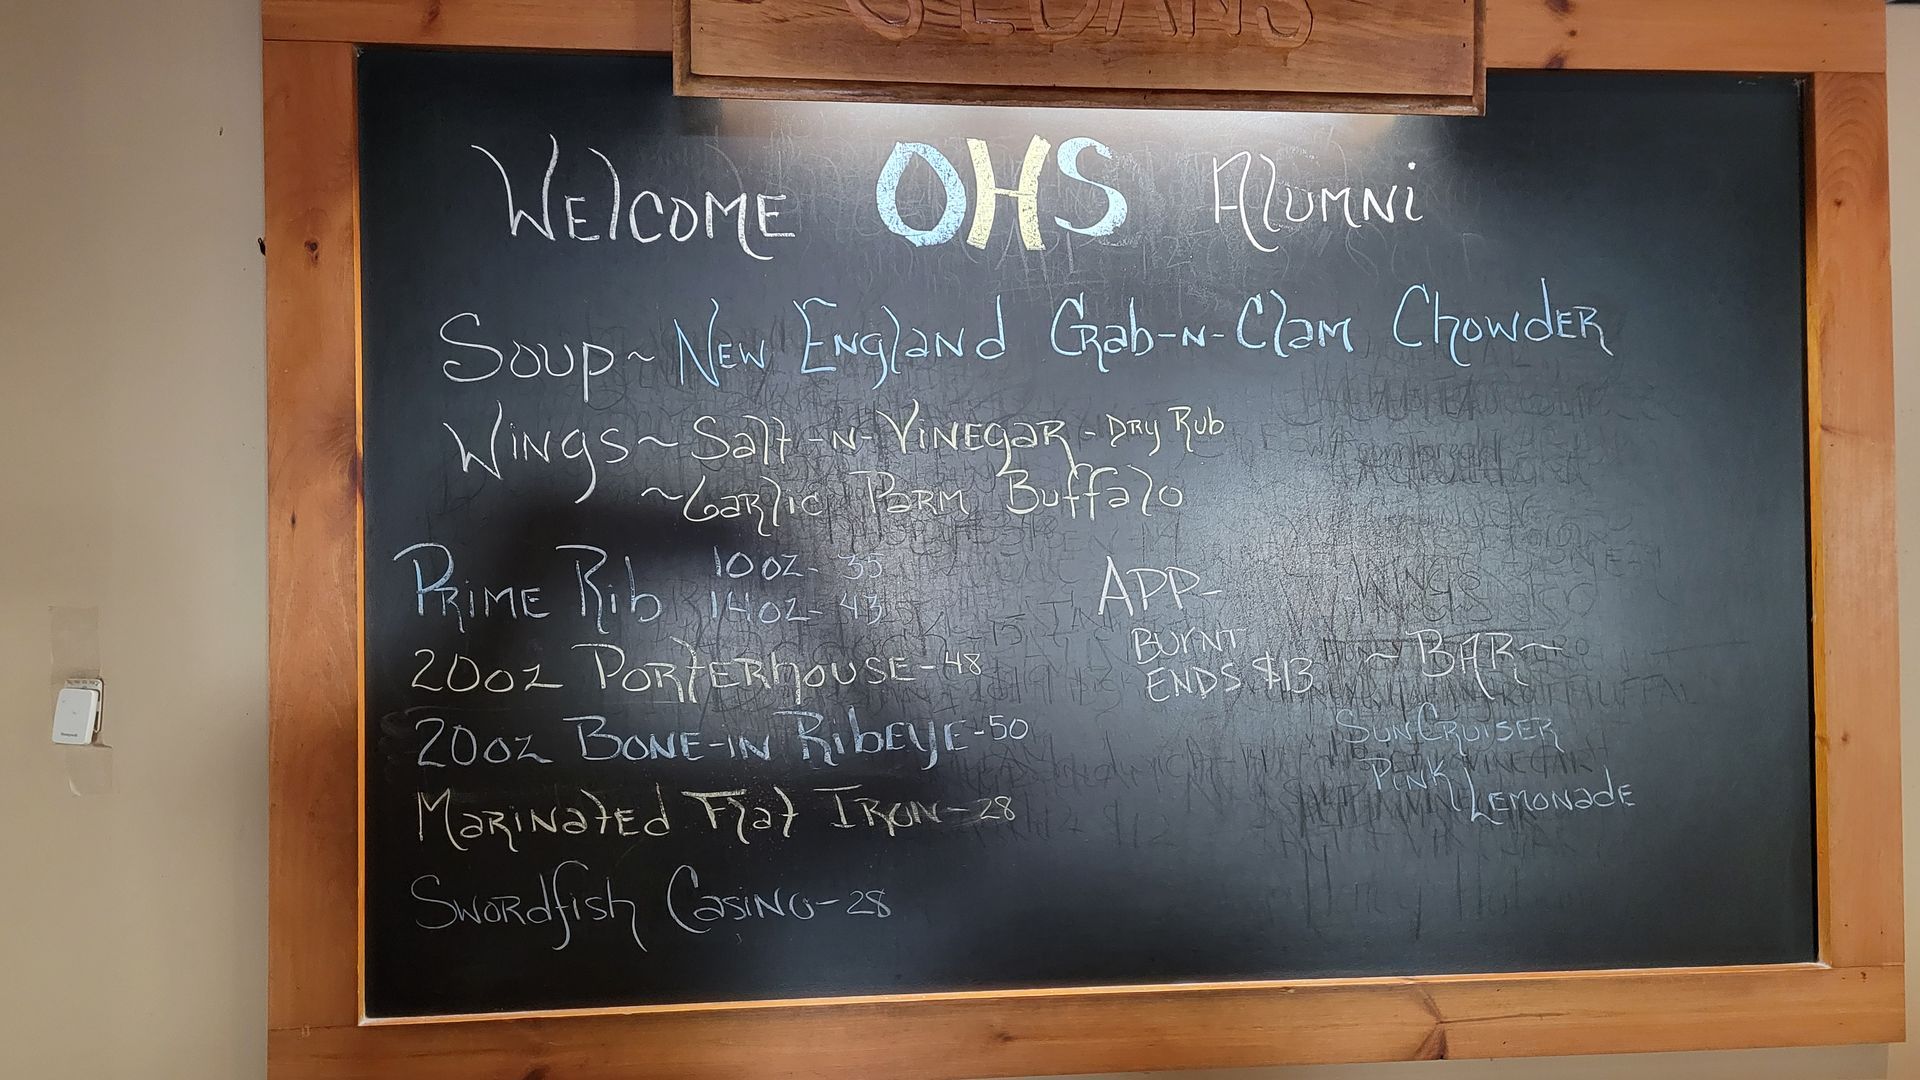 Welcome OHS Alumni
Soup~ New England Crab-n-Clam Chowder
Wings~ Salt-n-Vinegar - Dry Rub
~Garlic Parm Buffalo
Prime Rib 10oz- 35
14oz- 43
20oz Porterhouse-48
20oz Bone-in Ribeye-50
Marinated Flat Iron-28
Swordfish Casino-28
APP-
Burnt
Ends $13
~Bar~
SunCruiser
Pink Lemonade